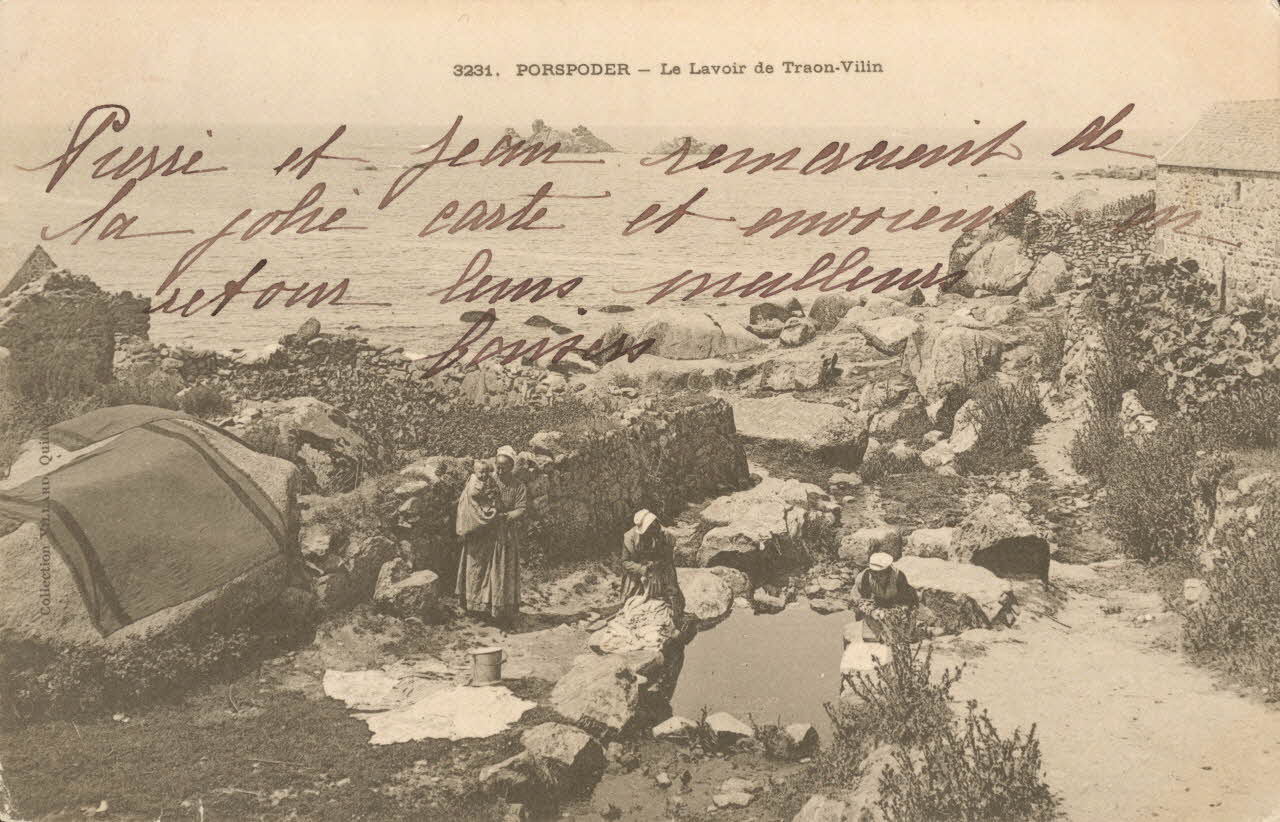 3231. PORSPODER – Le Lavoir de Traon-Vilin
Pierre et Jean remercient de
la jolie carte et envoient en
retour leurs meilleurs
baisers
Collection VILLARD, Quimper